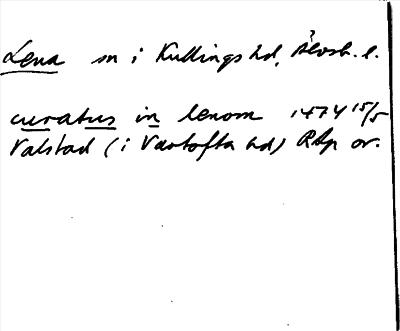 Lena sn i Kullings hd, Älvsb. l.
curatus in lenom 1474 15/5
Valstad (i Vartofta hd) RAp or.